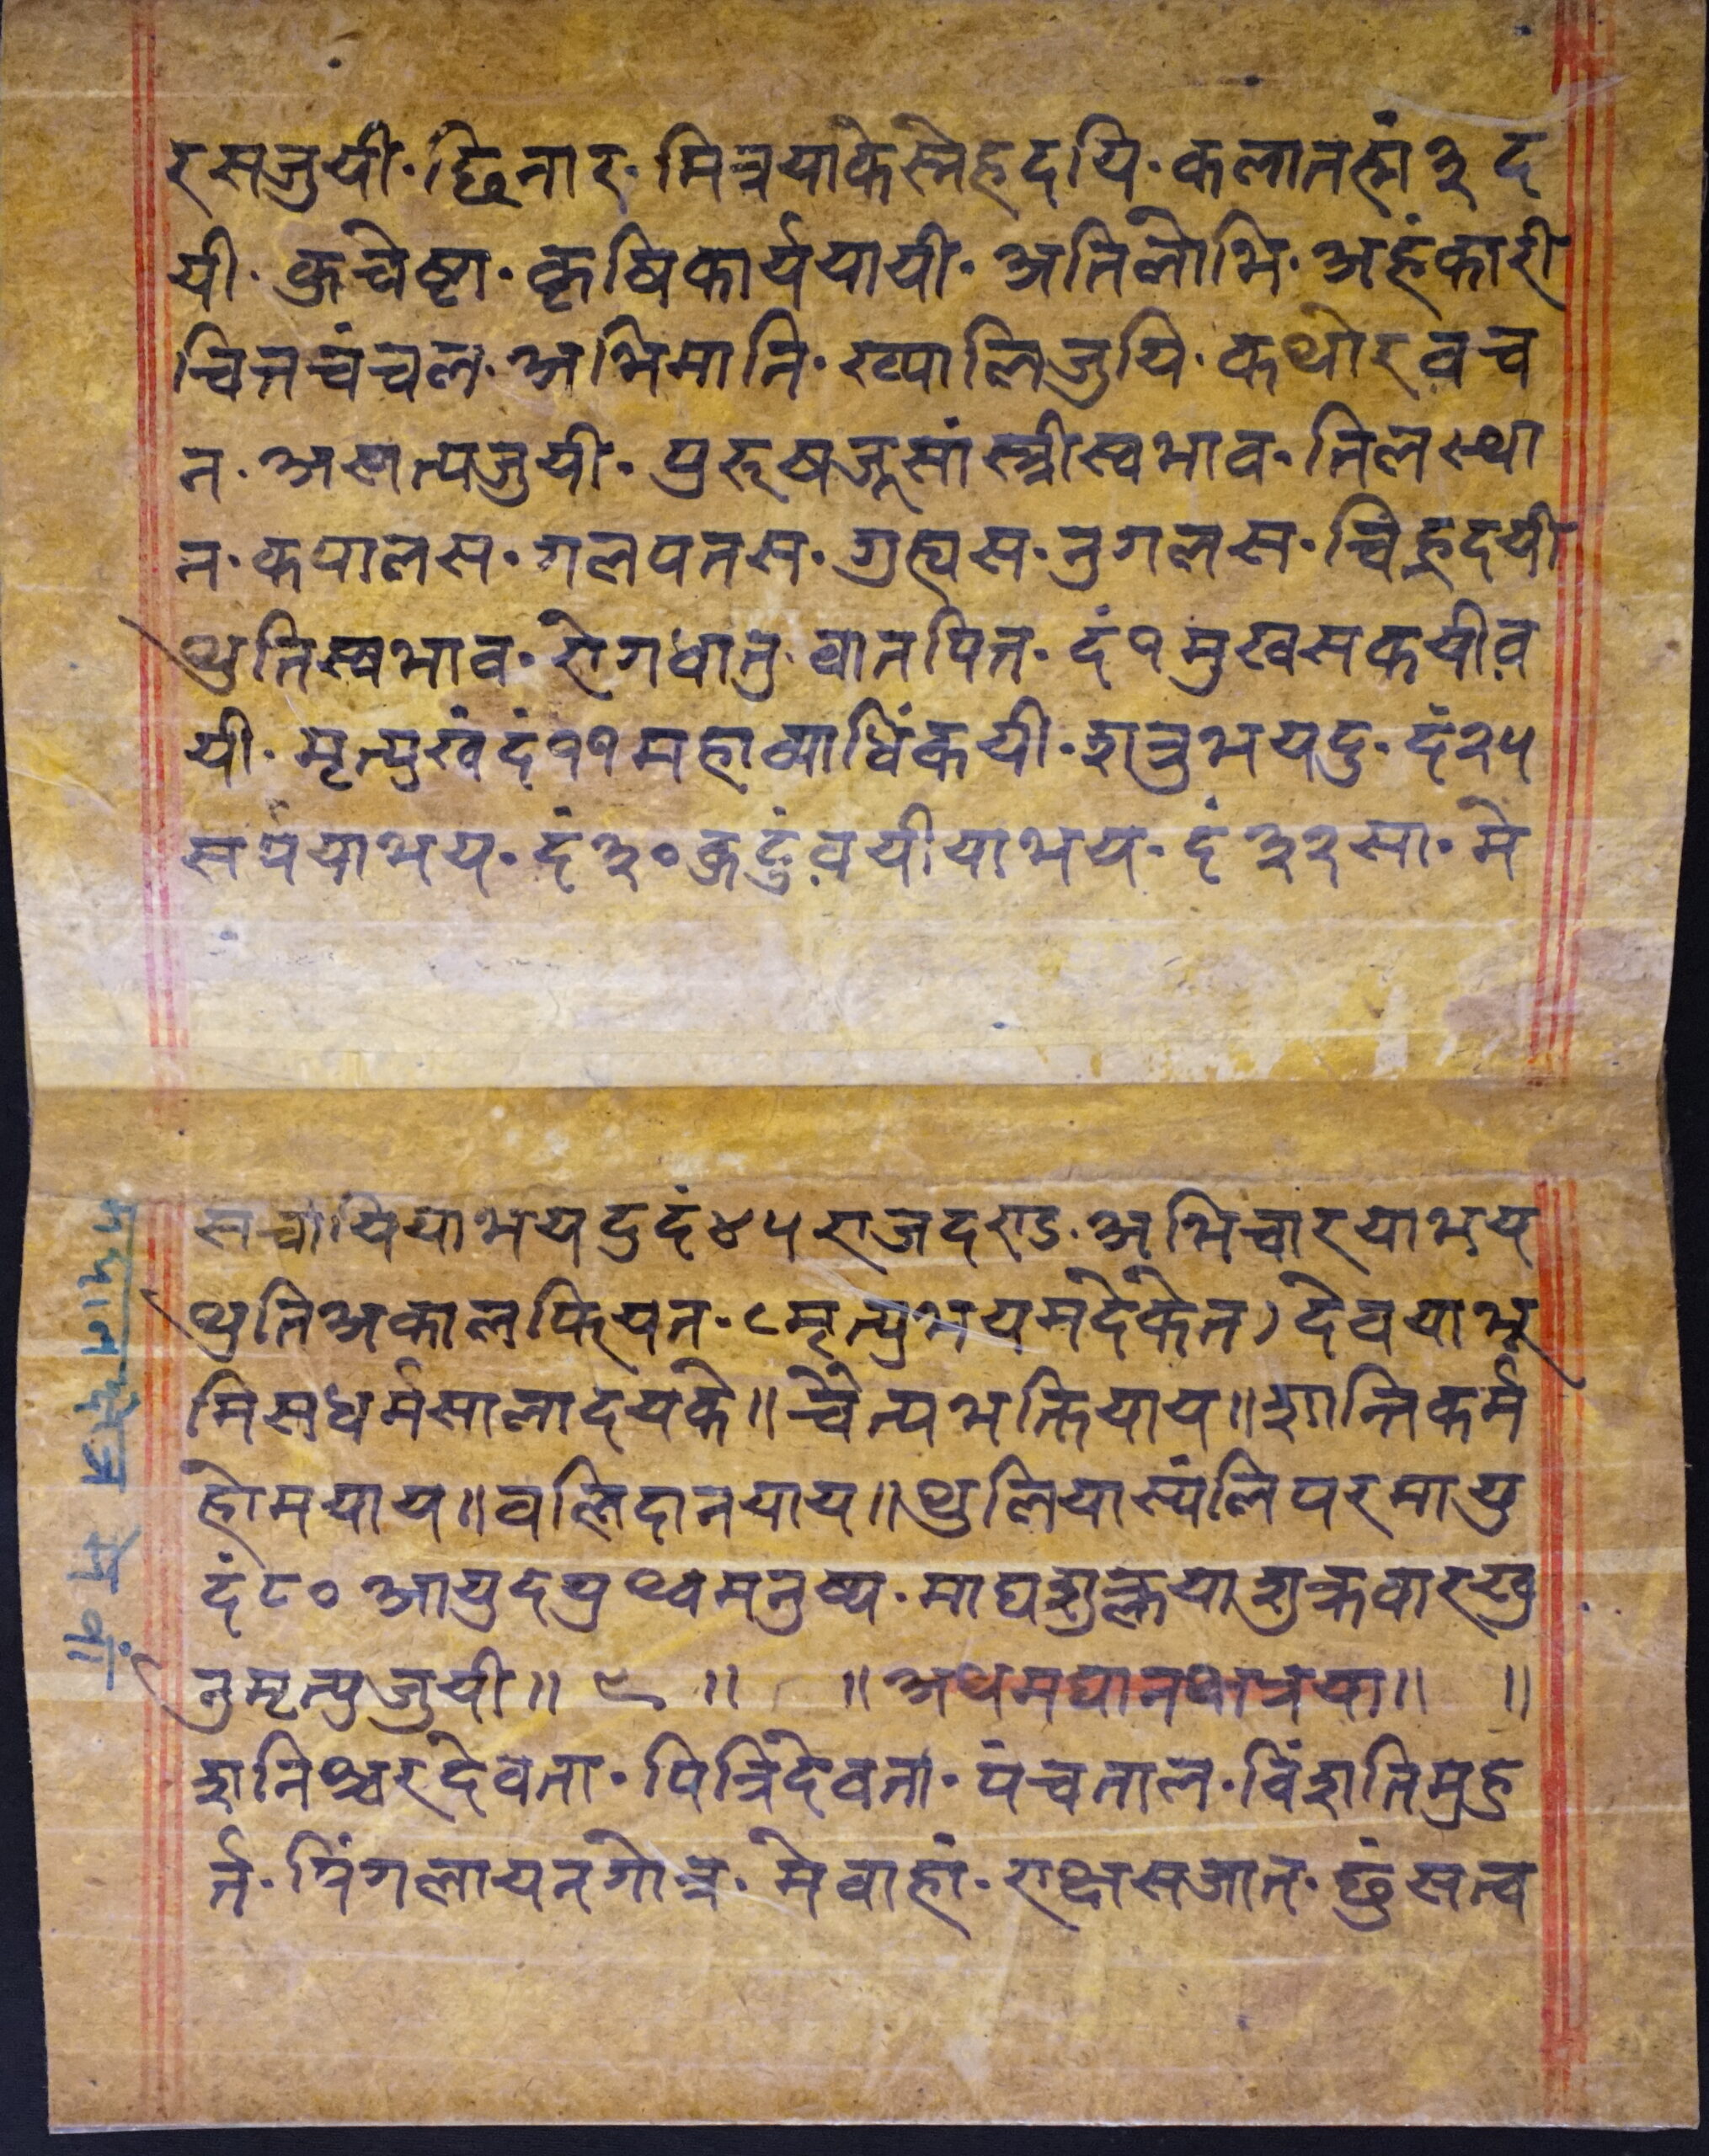 रसजुयी· छिनार· मित्रयाके स्नेहदयि· कलातह्मं ३ द
यी· कुचेष्टा· कृषिकार्ययायी· अतिलोभि· अहंकारी
चित्तचंचल· अभिमानि· ख्यालिजुयि· कथोरवच
न· असत्यजुयी· पुरूषजूसां स्त्रीस्वभाव· तिलस्था
न· कपालस· गलपतस· गुह्यस· नुगलस· चिह्नदयी
थुतिस्वभाव· रोगधातु वातपित्त· दं १ मुखसकयीव
यी· मृत्युखं दं ११ महाव्याधिंकयी· शत्रुभयदु· दं २५
सर्पयाभय· दं ३० कुटुंवयीयाभय· दं ३२ सा· मे
सचोयियाभयदु दं ४५ राजदण्ड· अभिचारयाभय
थुतिअकालफियत· (मृत्युभयमदेकेत) देवयाभू
मिसधर्मसालादयके॥ चैत्यभक्तियाय॥ शान्तिकर्म
होमयाय॥ वलिदानयाय॥ थुलियास्यंलि परमायु
दं ८० आयुद थुथ्वमनुष्य· माघशुक्लयाशुक्रवारखु
नुमृत्युजुयी॥ ९ ॥ ॥ अथमघानक्षत्रया॥ ॥
शनिश्चरदेवता· पित्रिदेवता· पंचताल· विंशतिमुहु
र्त· पिंगलायनगोत्र· मेवाहां· राक्षसजात· छुंसत्व